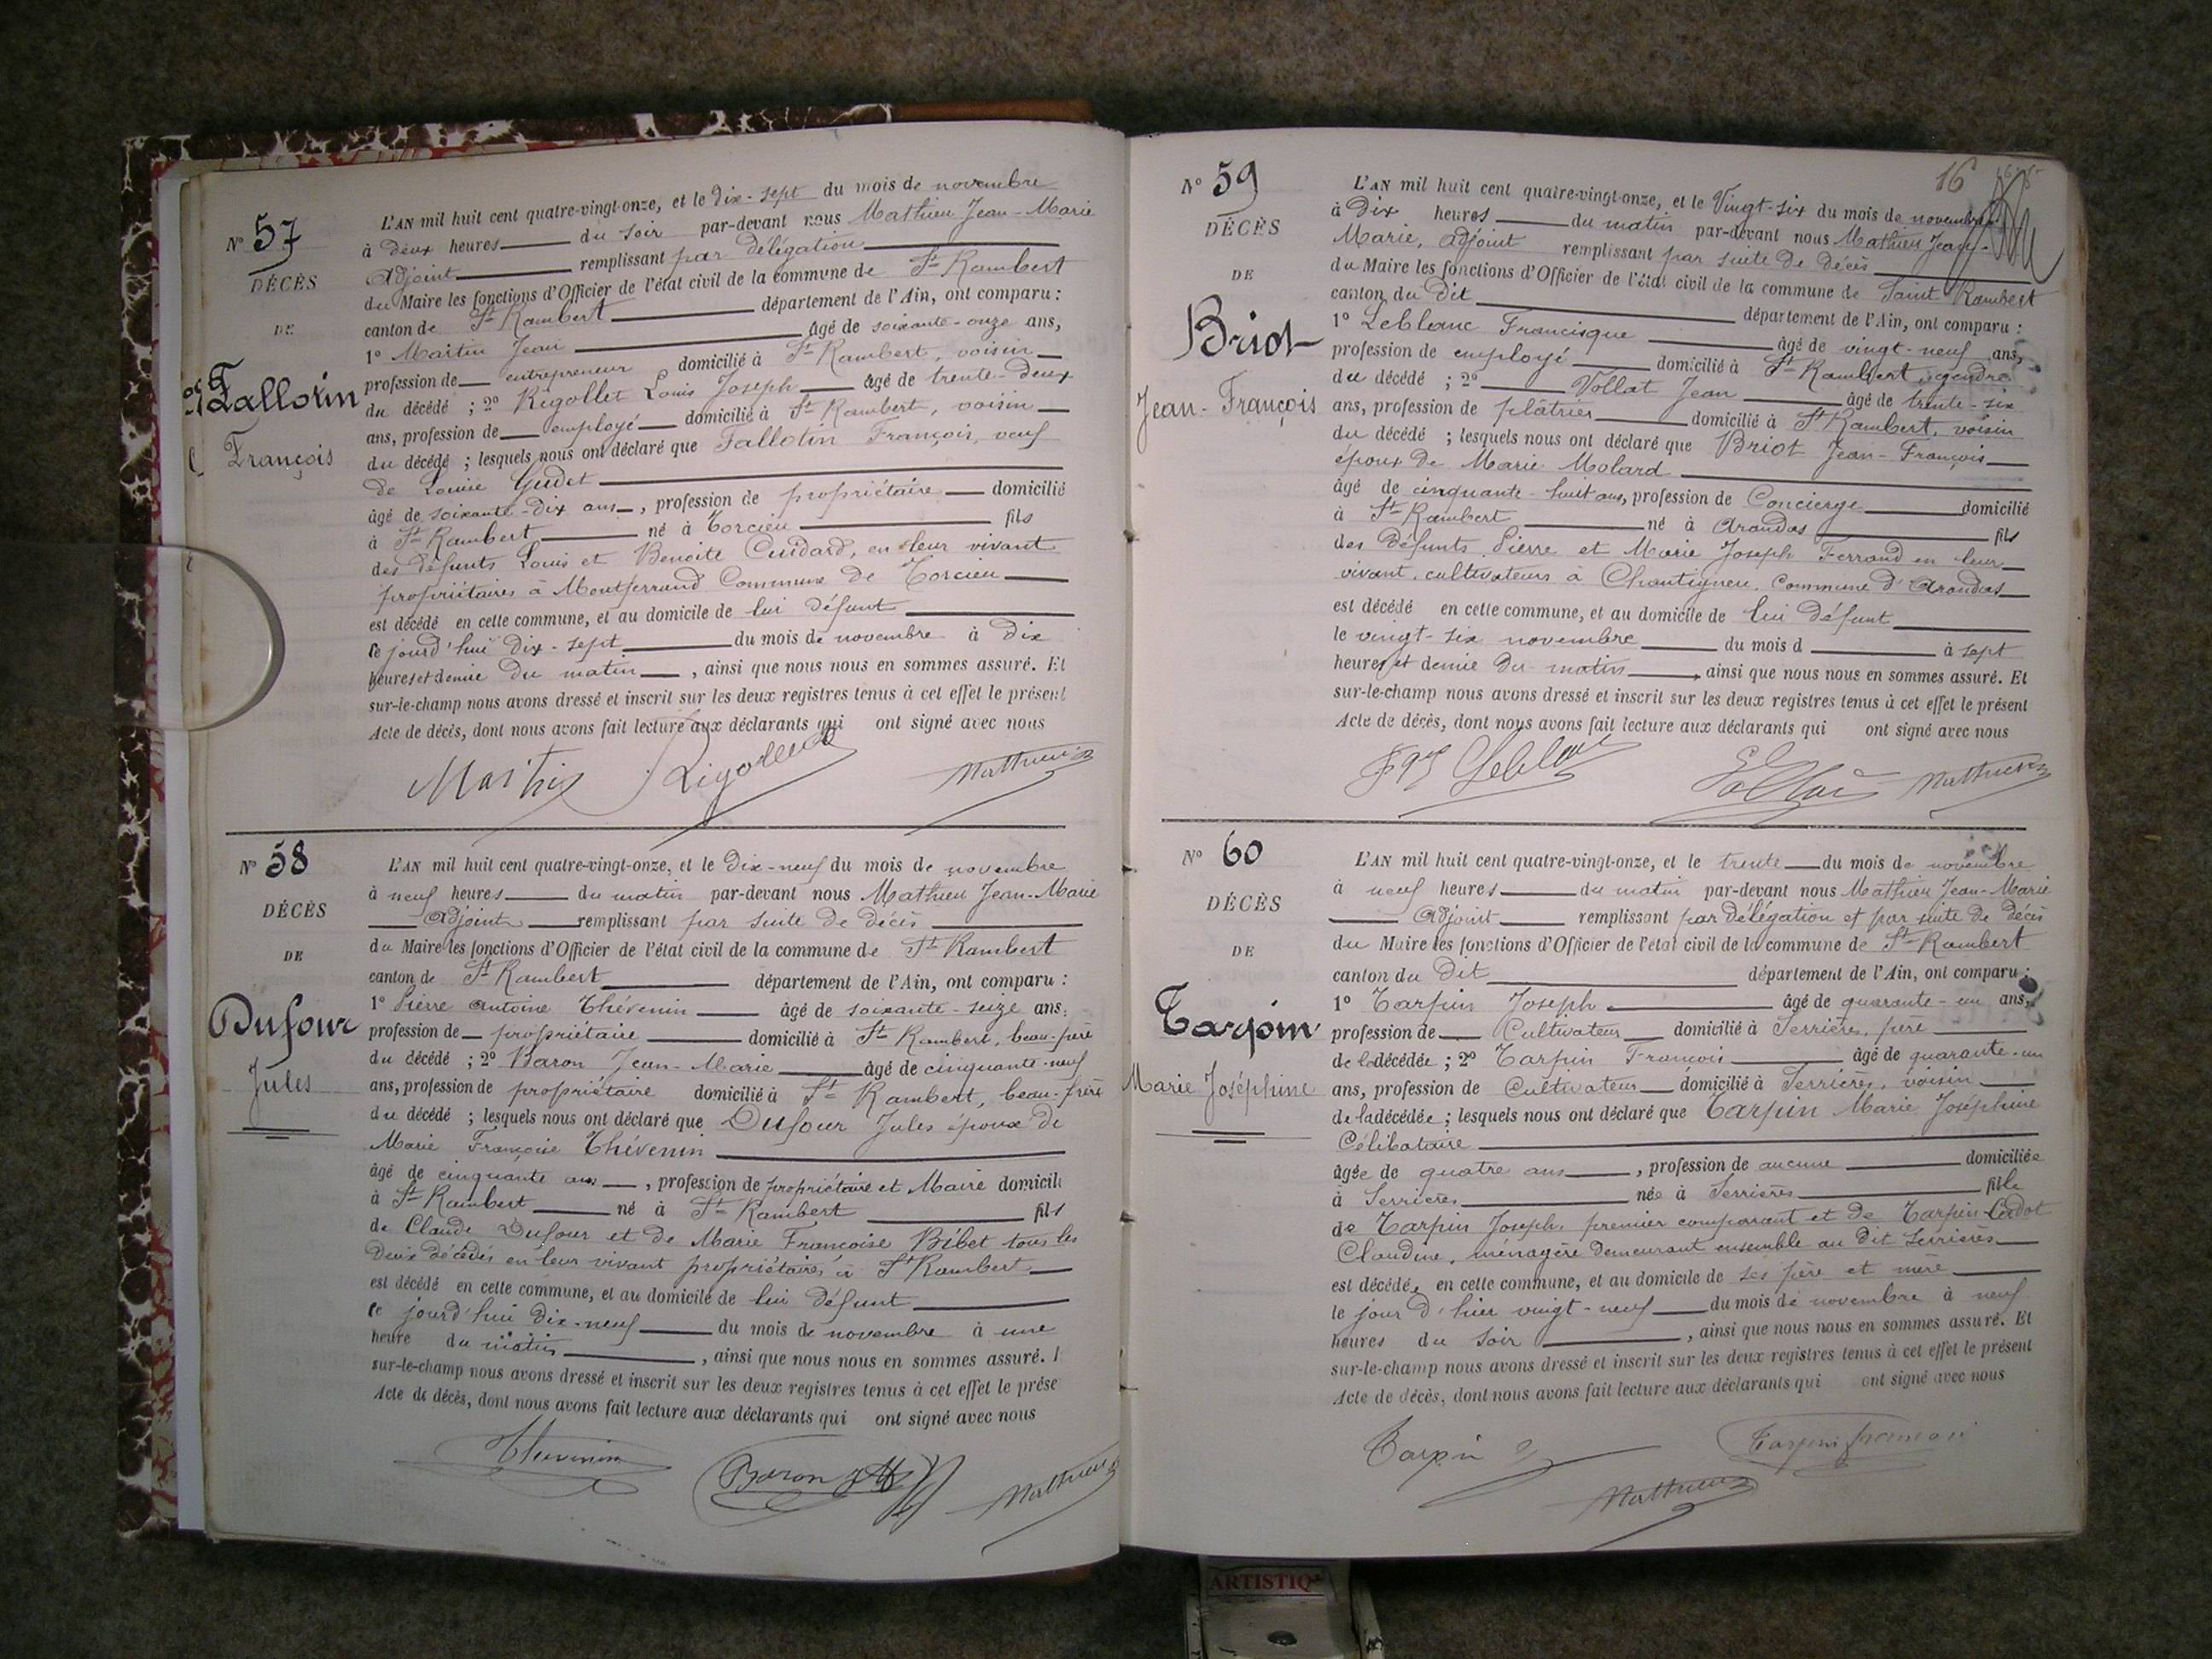 N° 57
DÉCÈS
DE
Fallotin
François
L'AN mil huit cent quatre-vingt-onze, et le dix-sept du mois de novembre
à deux heures du soir par-devant nous Mathieu Jean-Marie
Adjoint remplissant par délégation
du Maire les fonctions d'Officier de l'état civil de la commune de St Rambert
canton de St Rambert département de l'Ain, ont comparu :
1° Martin Jean âgé de soixante-onze ans,
profession de entrepreneur domicilié à St Rambert, voisin
du décédé ; 2° Rigollet Louis Joseph âgé de trente-deux
ans, profession de employé domicilié à St Rambert, voisin
du décédé ; lesquels nous ont déclaré que Fallotin François, veuf
de Louise Gudet
âgé de soixante-dix ans, profession de propriétaire domicilié
à St Rambert né à Torcieu fils
des défunts Louis et Benoite Cuidard, en leur vivant
propriétaires à Montferrand Commune de Torcieu
est décédé en cette commune, et au domicile de lui défunt
ce jourd'hui dix-sept du mois de novembre à dix
heures et demie du matin, ainsi que nous nous en sommes assuré. Et
sur-le-champ nous avons dressé et inscrit sur les deux registres tenus à cet effet le présent
Acte de décès, dont nous avons fait lecture aux déclarants qui ont signé avec nous
Martin Rigollet Mathieu
N° 58
DÉCÈS
DE
Dufour
Jules
L'AN mil huit cent quatre-vingt-onze, et le dix-neuf du mois de novembre
à neuf heures du matin par-devant nous Mathieu Jean-Marie
Adjoint remplissant par suite de décès
du Maire les fonctions d'Officier de l'état civil de la commune de St Rambert
canton de St Rambert département de l'Ain, ont comparu :
1° Pierre Antoine Thévenin âgé de soixante-seize ans,
profession de propriétaire domicilié à St Rambert, beau-père
du décédé ; 2° Baron Jean-Marie âgé de cinquante-neuf
ans, profession de propriétaire domicilié à St Rambert, beau-frère
du décédé ; lesquels nous ont déclaré que Dufour Jules époux de
Marie Françoise Thévenin
âgé de cinquante ans, profession de propriétaire et Maire domicili
à St Rambert né à St Rambert fils
de Claude Dufour et de Marie Françoise Bibet tous les
deux décédés en leur vivant propriétaires à St Rambert
est décédé en cette commune, et au domicile de lui défunt
ce jourd'hui dix-neuf du mois de novembre à une
heure du matin, ainsi que nous nous en sommes assuré. E
sur-le-champ nous avons dressé et inscrit sur les deux registres tenus à cet effet le prése
Acte de décès, dont nous avons fait lecture aux déclarants qui ont signé avec nous
Thévenin Baron JM Mathieu
16
N° 59
DÉCÈS
DE
Briot
Jean-François
L'AN mil huit cent quatre-vingt-onze, et le Vingt-six du mois de novembre
à Dix heures du matin par-devant nous Mathieu Jean-
Marie, adjoint remplissant par suite de décès
du Maire les fonctions d'Officier de l'état civil de la commune de Saint Rambert
canton du dit département de l'Ain, ont comparu :
1° Leblanc Francisque âgé de vingt-neuf ans,
profession de employé domicilié à St Rambert, gendre
du décédé ; 2° Vollat Jean âgé de trente-six
ans, profession de plâtrier domicilié à St Rambert, voisin
du décédé ; lesquels nous ont déclaré que Briot Jean-François
époux de Marie Molard
âgé de cinquante-huit ans, profession de Concierge domicilié
à St Rambert né à Arandas fils
des défunts Pierre et Marie Joseph Ferrand en leur
vivant cultivateurs à Chantigneu, Commune d'Arandas
est décédé en cette commune, et au domicile de lui défunt
le vingt-six novembre du mois d à sept
heures et demie du matin, ainsi que nous nous en sommes assuré. Et
sur-le-champ nous avons dressé et inscrit sur les deux registres tenus à cet effet le présent
Acte de décès, dont nous avons fait lecture aux déclarants qui ont signé avec nous
Leblanc Vollat Mathieu
N° 60
DÉCÈS
DE
Tarpin
Marie Joséphine
L'AN mil huit cent quatre-vingt-onze, et le trente du mois de novembre
à neuf heures du matin par-devant nous Mathieu Jean-Marie
Adjoint remplissant par délégation et par suite de décès
du Maire les fonctions d'Officier de l'état civil de la commune de St Rambert
canton du dit département de l'Ain, ont comparu :
1° Tarpin Joseph âgé de quarante-un ans,
profession de Cultivateur domicilié à Serrières, père
de la décédée ; 2° Tarpin François âgé de quarante-un
ans, profession de Cultivateur domicilié à Serrières, voisin
de la décédée ; lesquels nous ont déclaré que Tarpin Marie Joséphine
Célibataire
âgée de quatre ans, profession de aucune domiciliée
à Serrières née à Serrières fille
de Tarpin Joseph, premier comparant et de Tarpin-Cadot
Claudine, ménagère demeurant ensemble au dit Serrières
est décédé, en cette commune, et au domicile de ses père et mère
le jour d'hier vingt-neuf du mois de novembre à neuf
heures du soir, ainsi que nous nous en sommes assuré. Et
sur-le-champ nous avons dressé et inscrit sur les deux registres tenus à cet effet le présent
Acte de décès, dont nous avons fait lecture aux déclarants qui ont signé avec nous
Tarpin Tarpin francois
Mathieu
ARTISTIQ